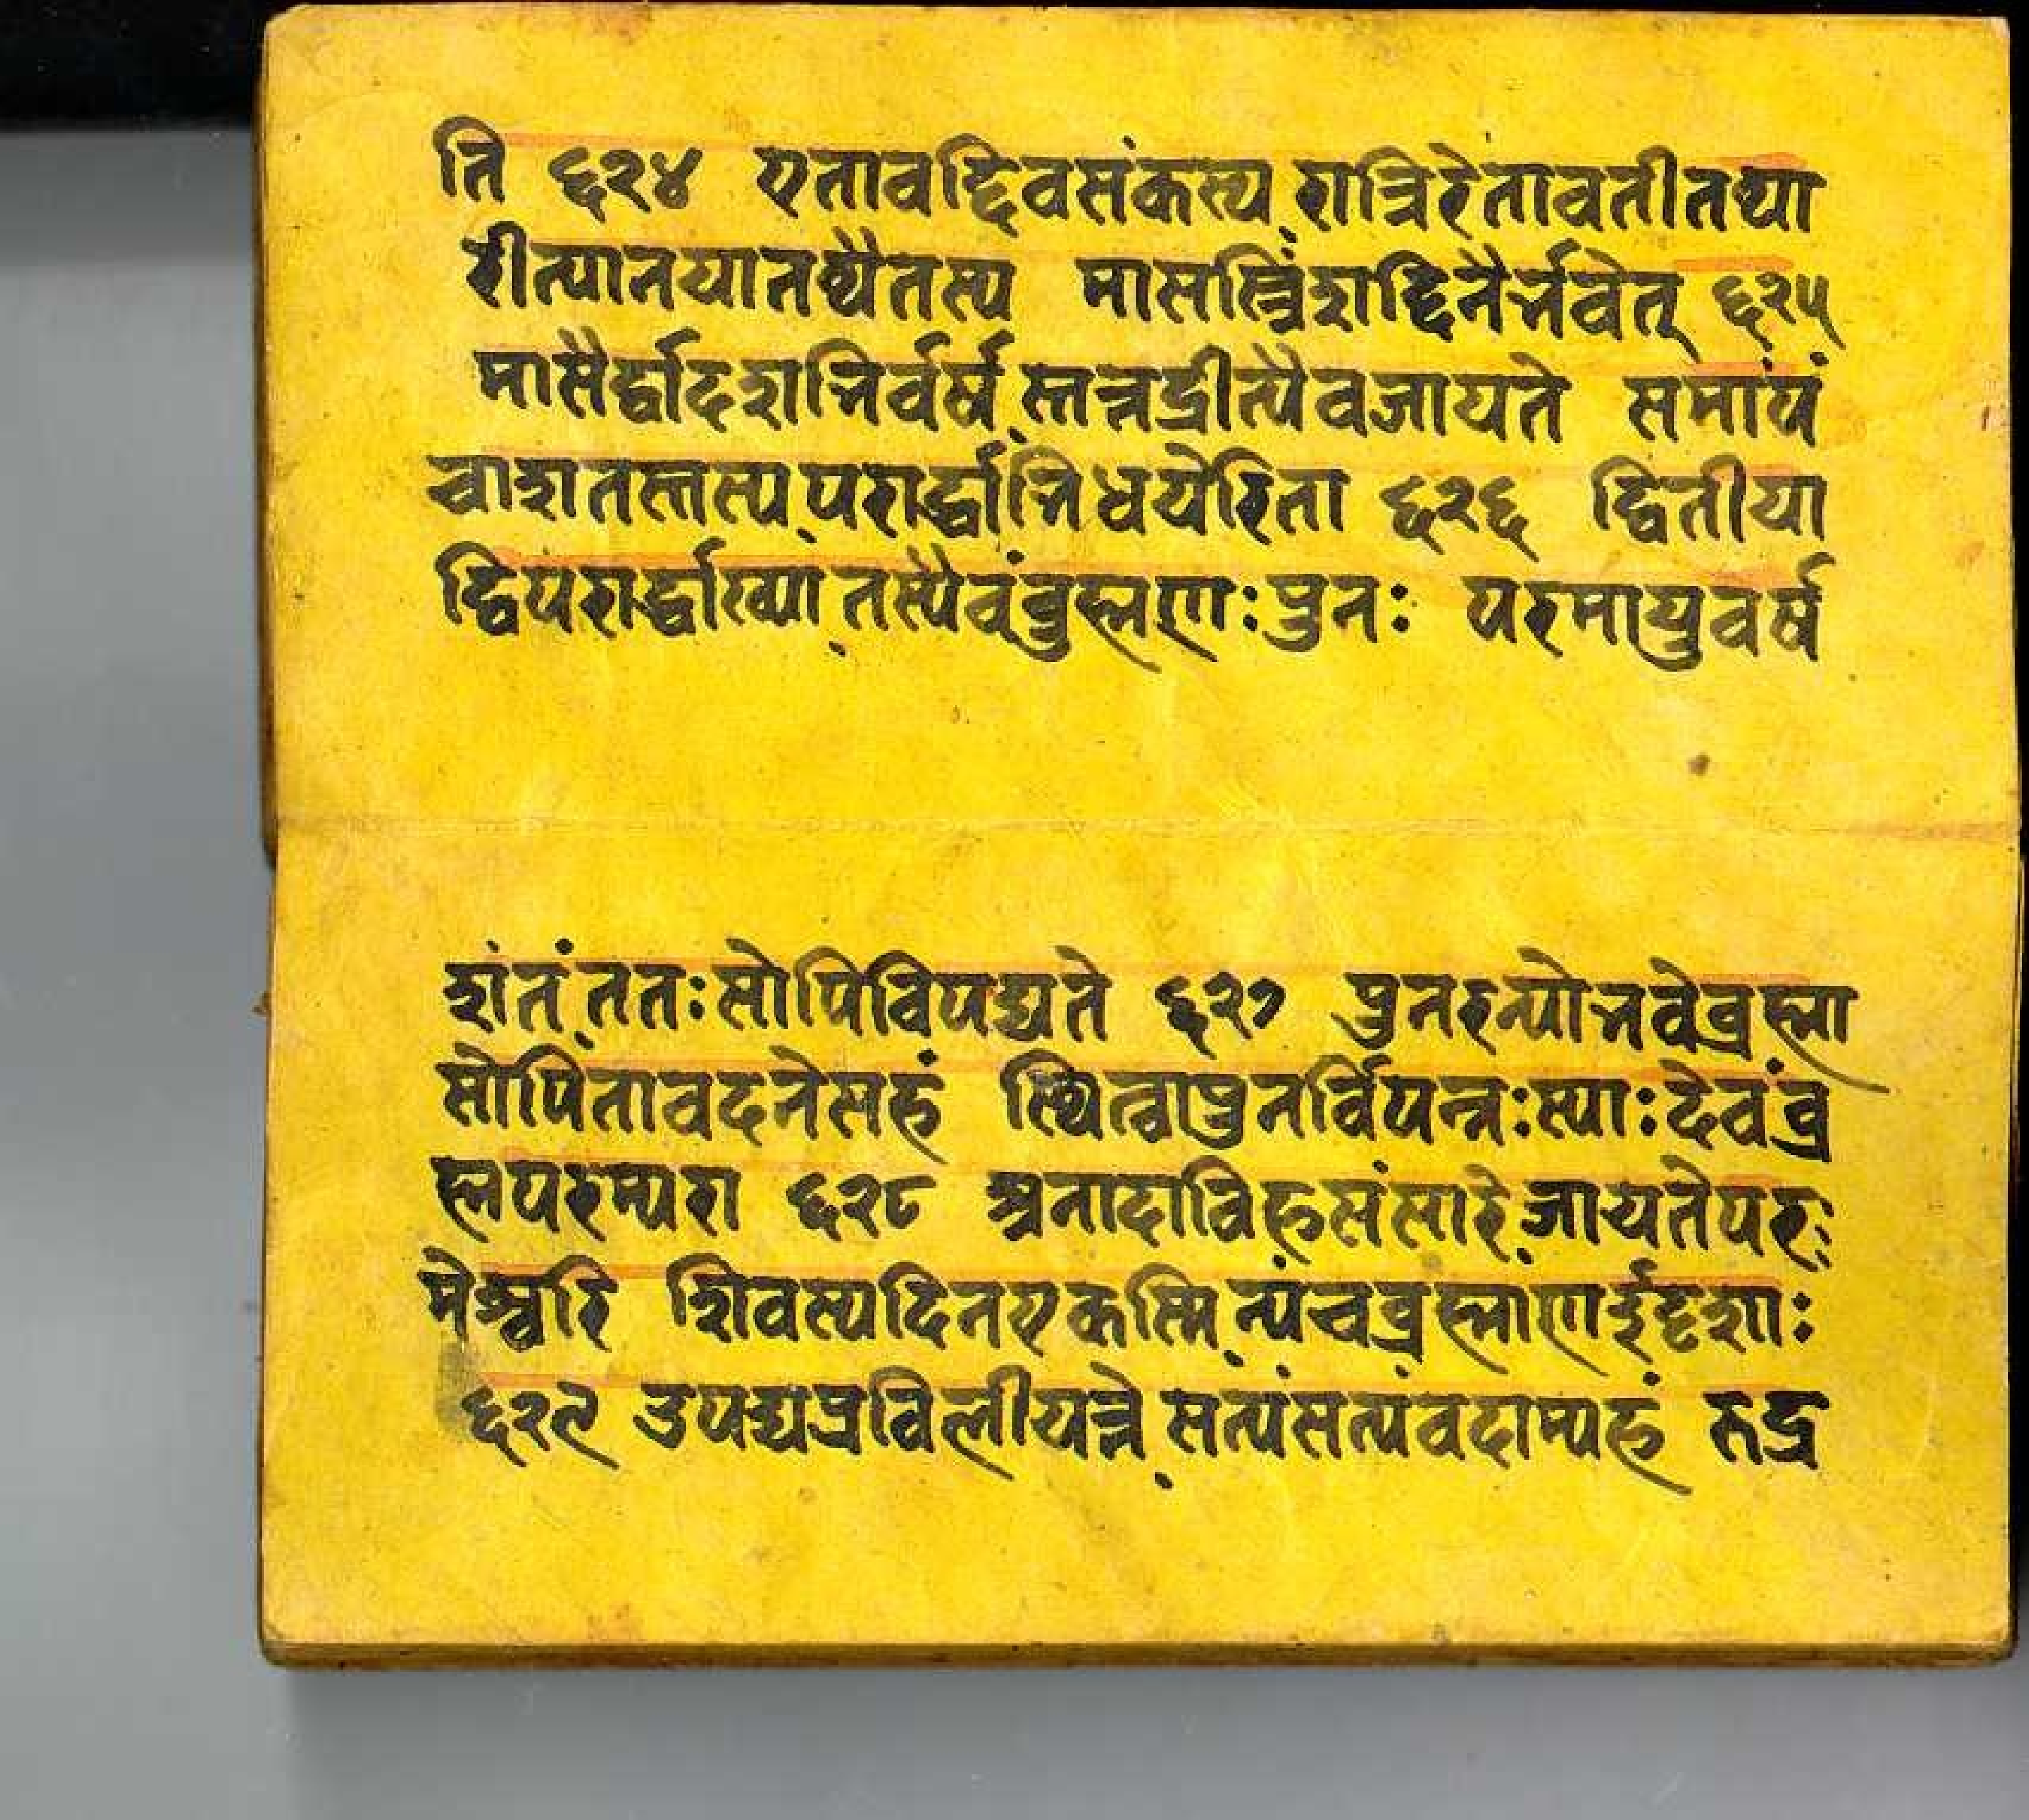 ति ६२४ एतावद्दिवसंकस्य रात्रिरेतावतीतथा
रीत्यानयातथैतस्य मासस्त्रिंशद्दिनैर्भवेत् ६२५
मासैर्द्वादशभिर्वर्षं स्तत्तद्रीत्यैवजायते समांपं
चाशतस्तस्य परार्द्धाभिधयेरिता ६२६ द्वितीया
द्विपरार्द्धाख्या तस्यैवंब्रुह्मणः पुनः परमायुवर्ष
शंतं ततः सोपिविपद्यते ६२७ पुनरन्योभवेब्रह्मा
सोपितावदनेसहं स्थित्वापुनर्विपन्नः स्याः देवंब्र
ह्मपरम्परा ६२८ अनादाविहसंसारे जायतेपर
मेश्वरि शिवस्यदिनएकस्मि न्पंचब्रह्माणईदृशाः
६२९ उपद्यप्रविलीयन्ते सत्यंसत्यंवदाम्यहं रुद्र